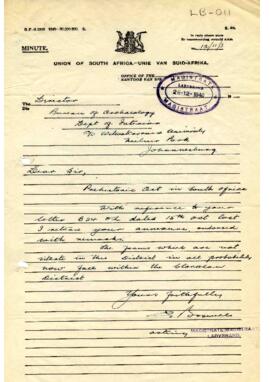 LB-011
MINUTE.
UNION OF SOUTH AFRICA.—UNIE VAN SUID-AFRIKA.
OFFICE OF THE
KANTOOR VAN DIE
MAGISTRATE
LADYBRAND
28-12-19
MAGISTRAAT
The Director
Bureau of Archaeology
Dept of Interior
c/o Witwatersrand University
Milner Park
Johannesburg
Dear Sir,
Prehistoric Art in South Africa
With reference to your
letter dated 15th Oct last
I return your annexure, endorsed
with remarks.
The farms which are not
situate in this District in all probability
now fall within the Clocolan
District
Yours faithfully
Acting MAGISTRATE/MAGISTRAAT
LADYBRAND.